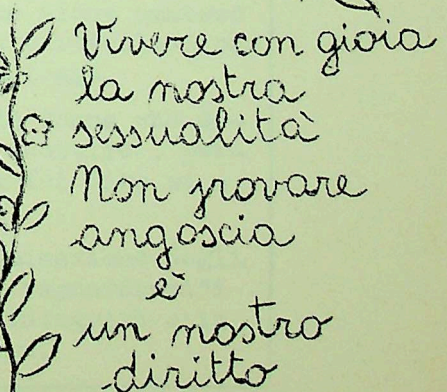 Vivere con gioia
la nostra
sessualità
Non provare
angoscia
è
un nostro
diritto